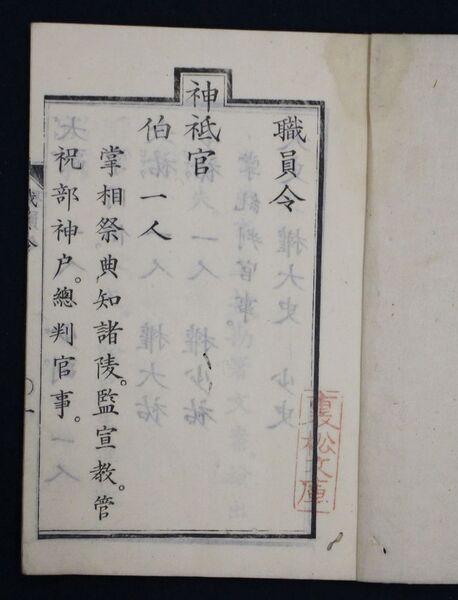 職員令
神祗官
伯 一人
掌相祭典知諸陵。監宣教。管
祝部神户。總判官事。
松文庫